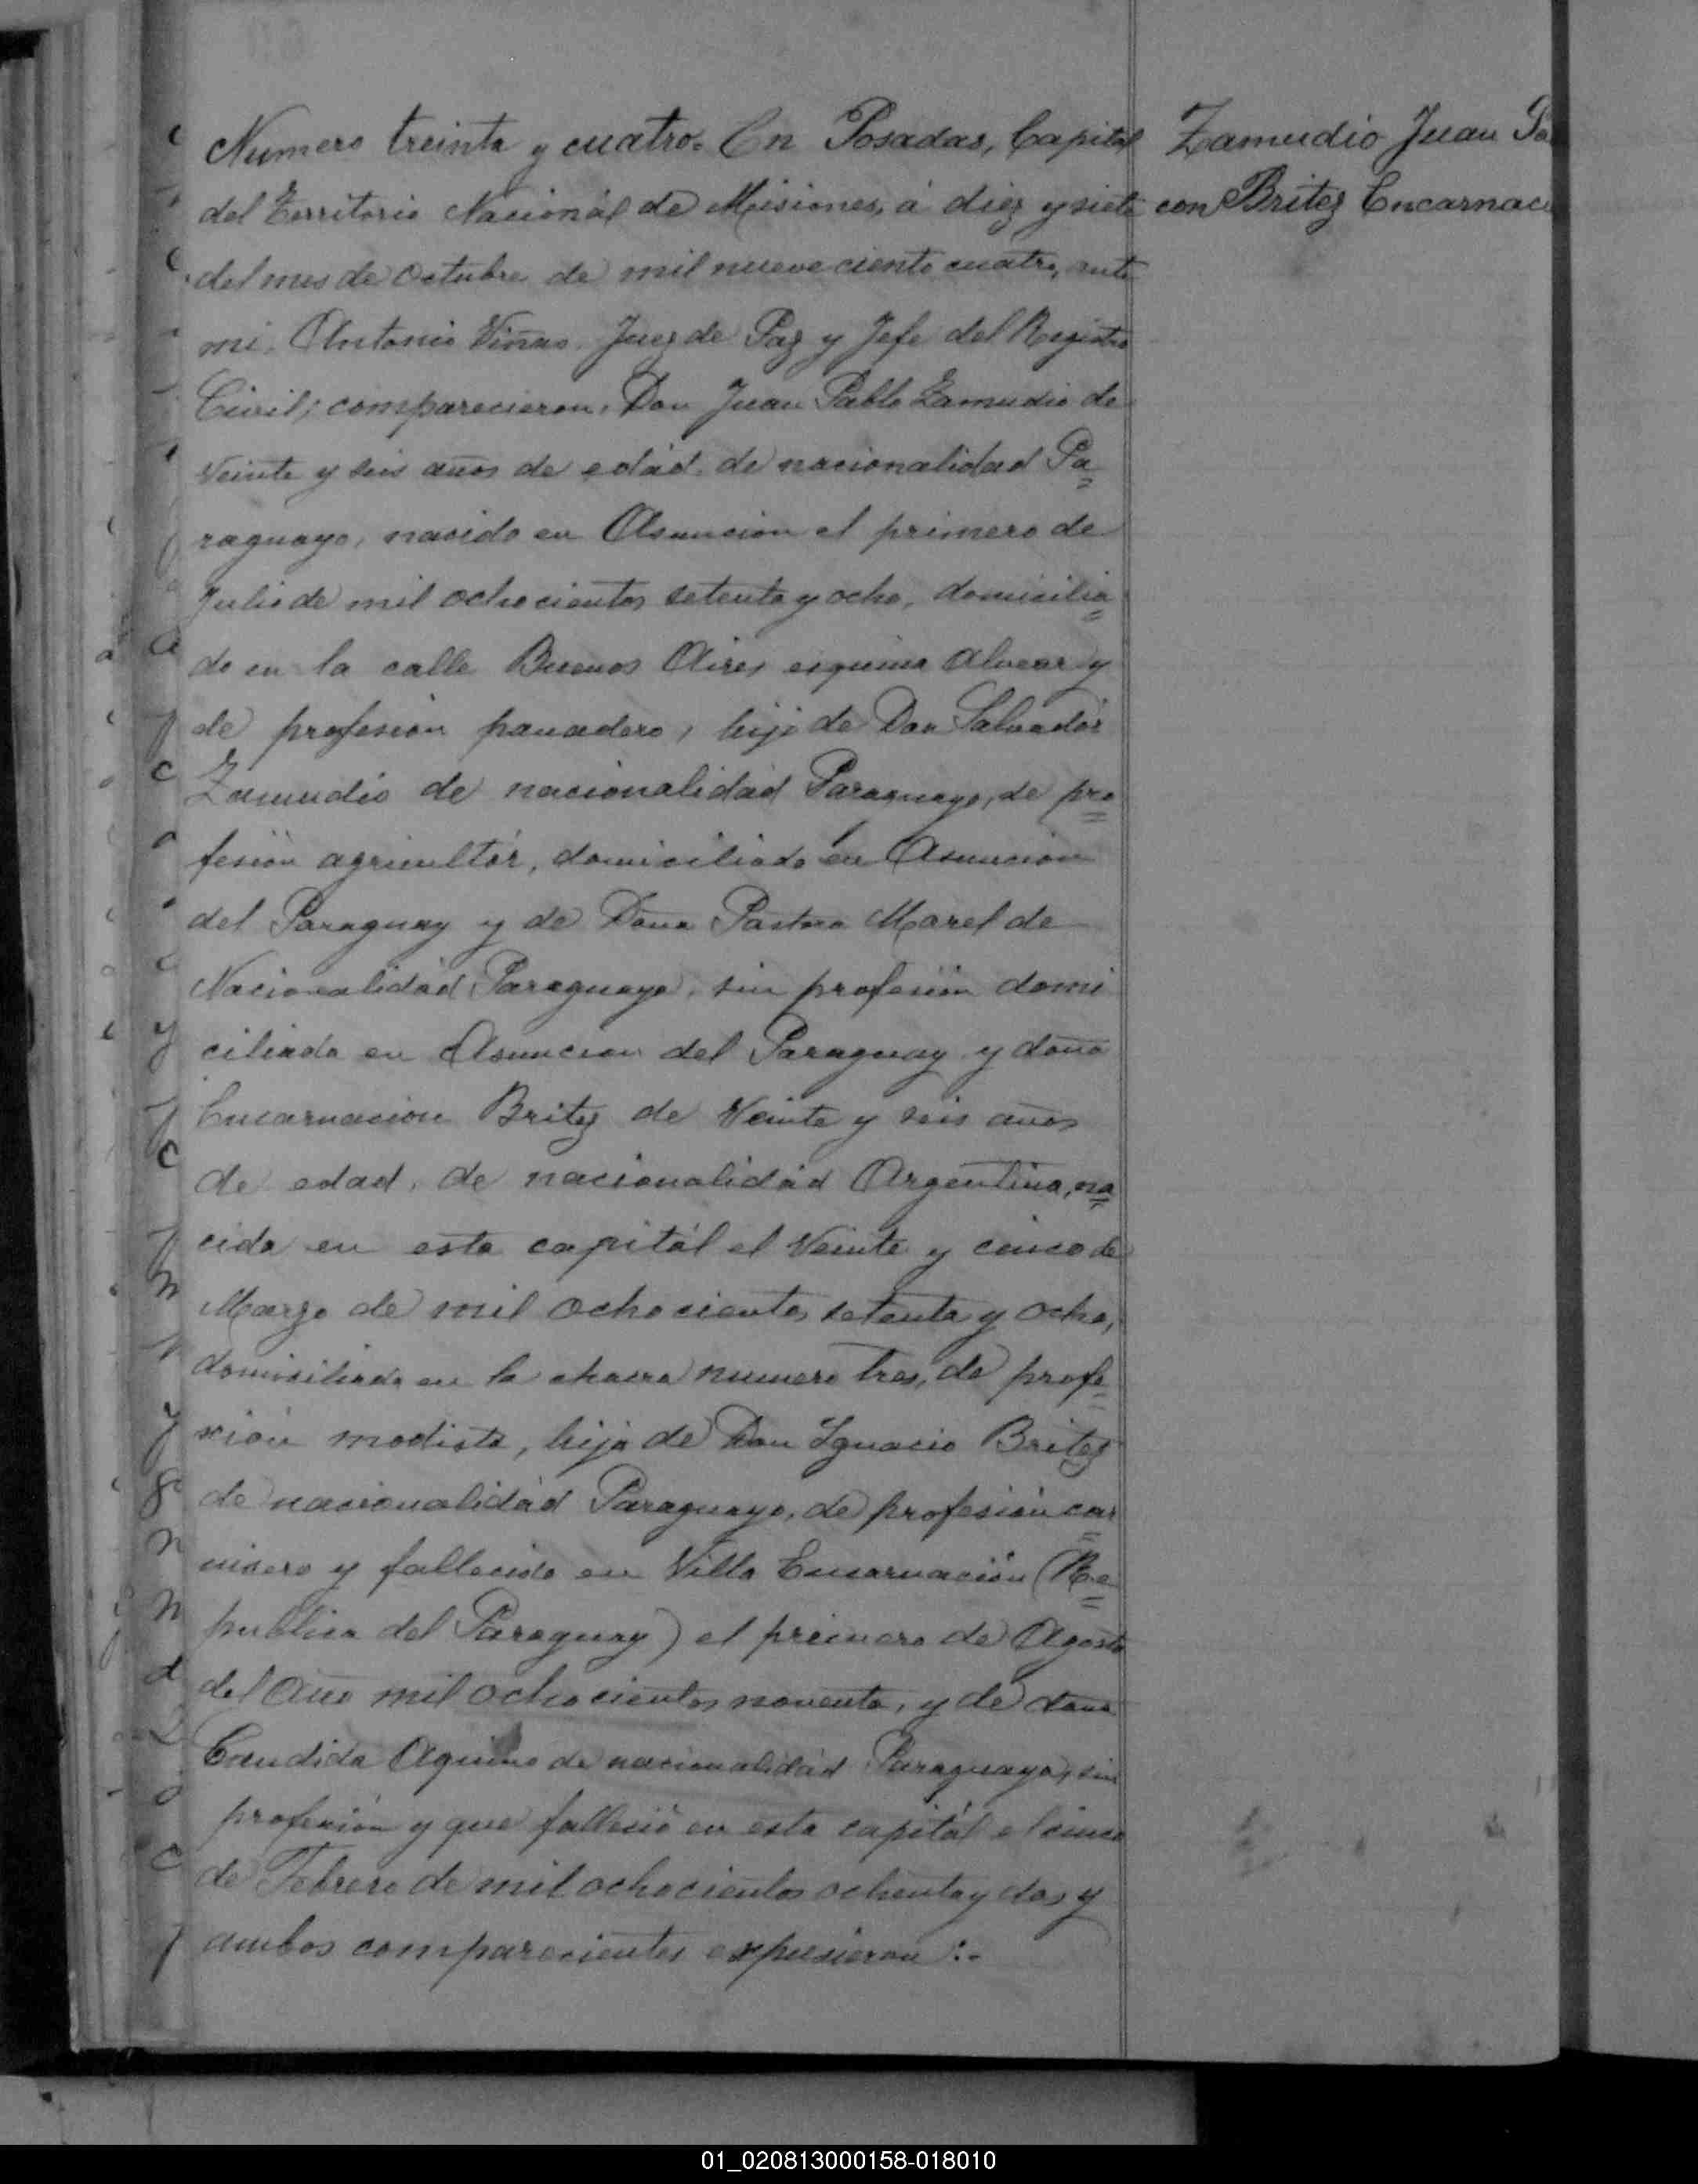 Numero treinta y cuatro. En Posadas, Capital
del Territorio Nacionál de Misiones, á diez y siete
del mes de Octubre de mil nueve ciento cuatro, ante
mi. Antonio Viñas. Juez de Paz y Jefe del Registro
Civil; comparecieron, Don Juan Pablo Zamudio de
Veinte y seis años de edád. de nacionalidad Pa=
raguayo, nacido en Asuncion el primero de
Julio de mil ochocientos setenta y ocho, domicilia=
do en la calle Buenos Aires esquina Alvear y
de profesion panadero, hijo de Don Salvadór
Zamudio de nacionalidád Paraguayo, de pro=
fesión agricultór, domiciliado en Asuncion
del Paraguay y de Doña Pastora Marel de
Nacionalidád Paraguaya, sin profesión domi
ciliada en Asuncion del Paraguay y doña
Encarnacion Britez de Veinte y seis años
de edad, de nacionalidád Argentina, na=
cida en esta capitál el Veinte y cinco de
Marzo de mil ochocientos setenta y ocho,
domiciliada en la chacra numero tres, de profe=
sión modista, hija de Don Ignacio Britez
de nacionalidád Paraguayo, de profesión car=
nicero y fallecido en Villa Encarnación (Re=
publica del Paraguay) el primero de Agosto
del Año mil ochocientos noventa, y de doña
Candida Aquino de nacionalidád Paraguaya, sin
profesión y que fallecio en esta capitál el cinco
de Febrero de mil ochocientos ochenta y dos y
ambos comparecientes expusieron :-
Zamudio Juan Pa
con Britez Encarnac
01_020813000158-018010